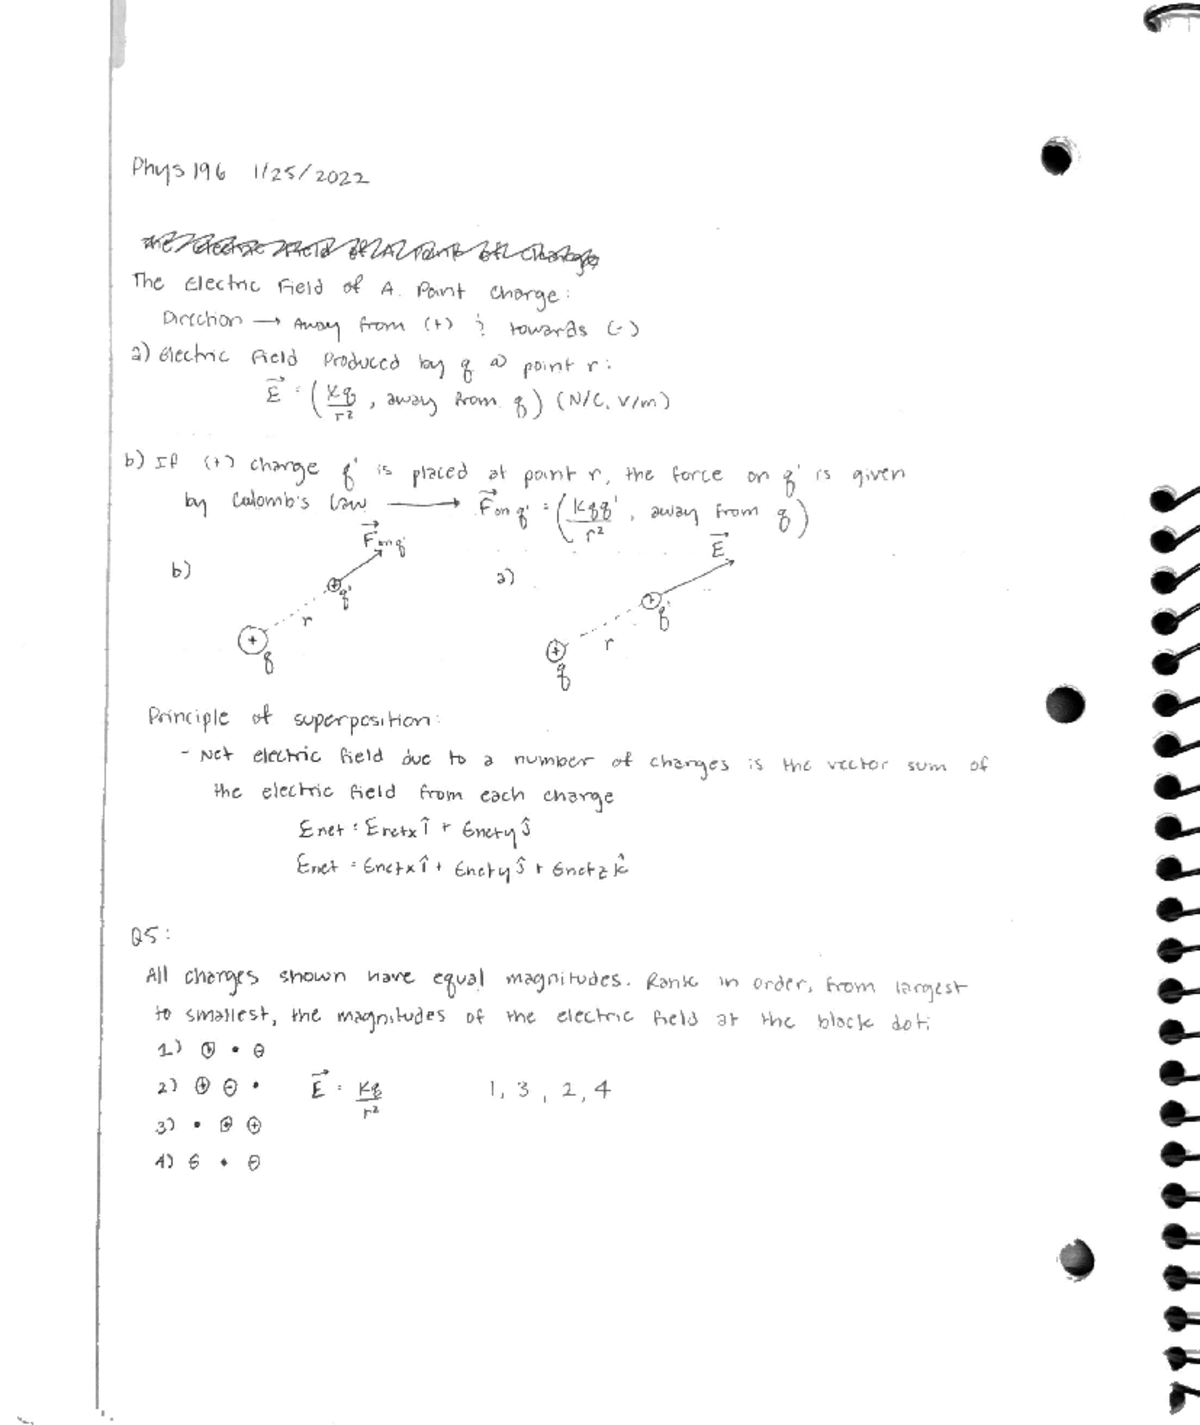 Phys 196 1/25/2022
The Electric Field of A Point Charge
The Electric Field of A. Point Charge:
Direction → Away from (+) & towards (-)
a) Electric Field Produced by q @ point r:
E⃗ = (Kq/r², away from q) (N/C, V/m)
b) If (+) charge q' is placed at point r, the force on q' is given
by Colomb's Law → F⃗ on q' = (Kqq'/r², away from q)
b) F⃗ on q' a) E⃗
⊕ q' ⊕ q'
r r
⊕ q ⊕ q
Principle of superposition:
- Net electric field due to a number of charges is the vector sum of
the electric field from each charge
Enet = Enetx î + Enety ĵ
Enet = Enetx î + Enety ĵ + Enetz k̂
Q5:
All charges shown have equal magnitudes. Rank in order, from largest
to smallest, the magnitudes of the electric field at the black dot:
1) ⊕ • ⊖
2) ⊕ ⊖ • E⃗ = Kq/r² 1, 3, 2, 4
3) • ⊕ ⊕
4) ⊖ • ⊖